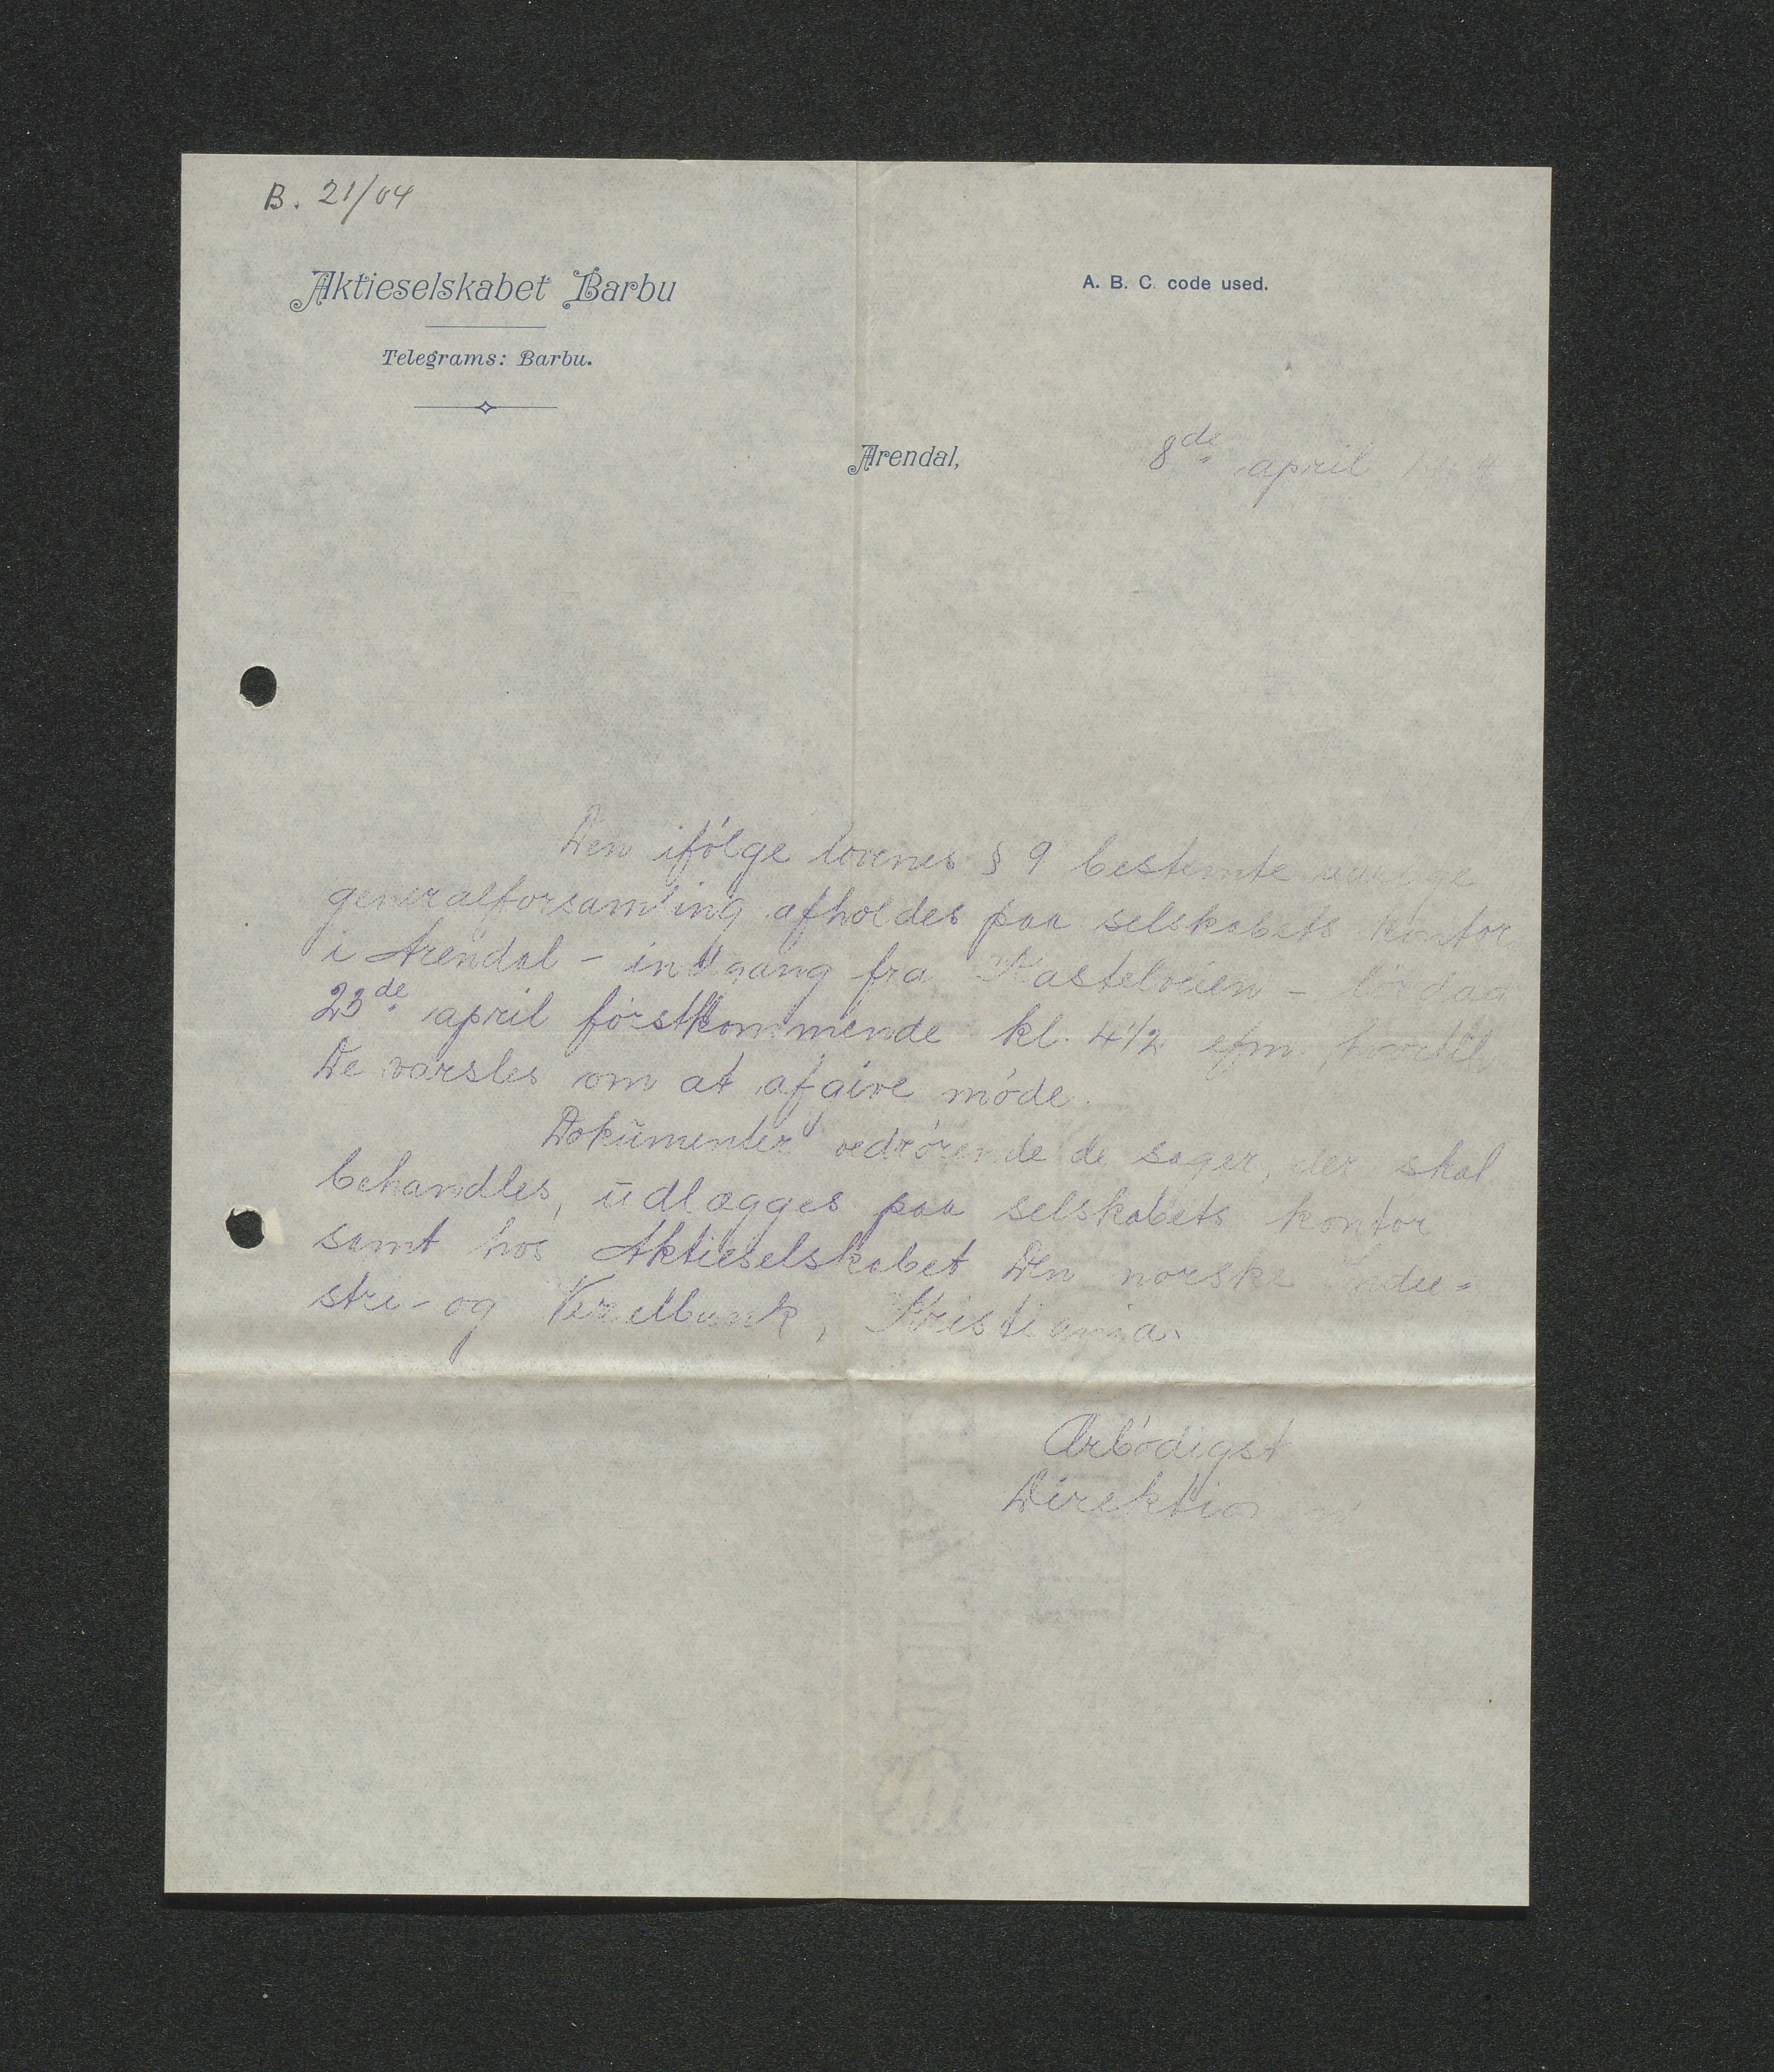 B. 21/04
Aktieselskabet Barbu
A. B. C. code used.
Telegrams: Barbu.
Arendal, 8de april
Den ifölge lovenes § 9 bestemte aarlige
generalforsamling afholdes paa selskabets kontor
i Arendal - indgang fra Kastelveien - lördag
23de april förstkommende kl. 4 1/2 efm, hvortil
De varsles om at afgive möde.
Dokumenter vedrörende de sager, der skal
behandles, udlægges paa selskabets kontor
samt hos Aktieselskabet Den norske Indu=
stri- og Vexelbank, Kristiania.
Ærbödigst
Direktionen